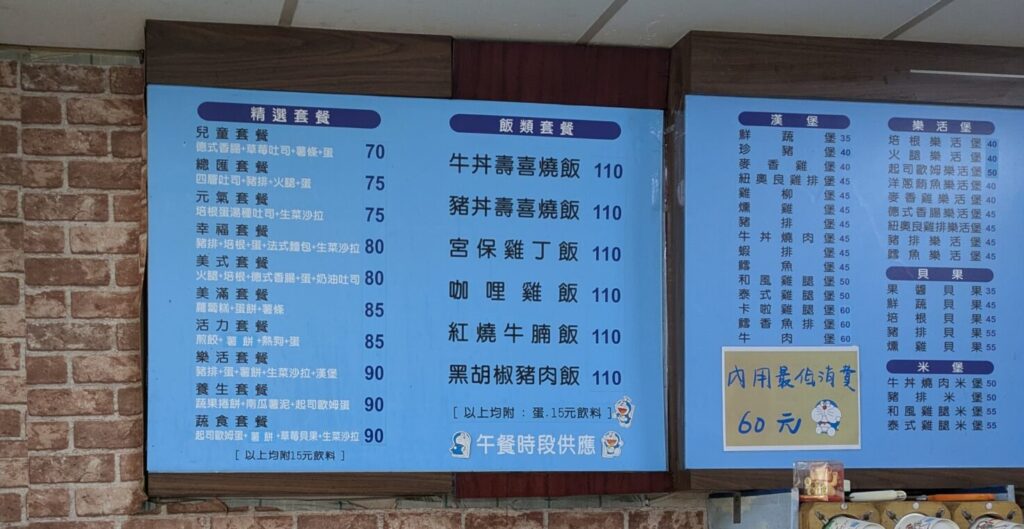 精選套餐
兒童套餐
德式香腸+草莓吐司+薯條+蛋 70
總匯套餐
四層吐司+豬排+火腿+蛋 75
元氣套餐
培根蛋湯種吐司+生菜沙拉 75
幸福套餐
豬排+培根+蛋+法式麵包+生菜沙拉 80
美式套餐
火腿+培根+德式香腸+蛋+奶油吐司 80
美滿套餐
蘿蔔糕+蛋餅+薯條 85
活力套餐
煎餃+薯餅+熱狗+蛋 85
樂活套餐
豬排+蛋+薯餅+生菜沙拉+漢堡 90
養生套餐
蔬果捲餅+南瓜薯泥+起司歐姆蛋 90
蔬食套餐
起司歐姆蛋+薯餅+草莓貝果+生菜沙拉 90
[以上均附15元飲料]
飯類套餐
牛丼壽喜燒飯 110
豬丼壽喜燒飯 110
宮保雞丁飯 110
咖哩雞飯 110
紅燒牛腩飯 110
黑胡椒豬肉飯 110
[以上均附:蛋.15元飲料]
午餐時段供應
漢堡
鮮蔬堡 35
珍豬堡 40
麥香雞堡 40
紐奧良雞排堡 45
雞柳堡 45
燻雞堡 45
豬排堡 45
牛丼燒肉堡 45
蝦排堡 45
鱈魚堡 45
和風雞腿堡 50
泰式雞腿堡 50
卡啦雞腿堡 60
鱈香魚排堡 60
牛肉堡 60
內用最低消費
60元
樂活堡
培根樂活堡 40
火腿樂活堡 40
起司歐姆樂活堡 50
洋蔥鮪魚樂活堡 45
麥香雞樂活堡 45
德式香腸樂活堡 45
紐奧良雞排樂活堡 45
豬排樂活堡 45
鱈魚樂活堡 45
貝果
果醬貝果 35
鮮蔬貝果 45
培根貝果 45
豬排貝果 55
燻雞貝果 55
米堡
牛丼燒肉米堡 50
豬排米堡 50
和風雞腿米堡 55
泰式雞腿米堡 55